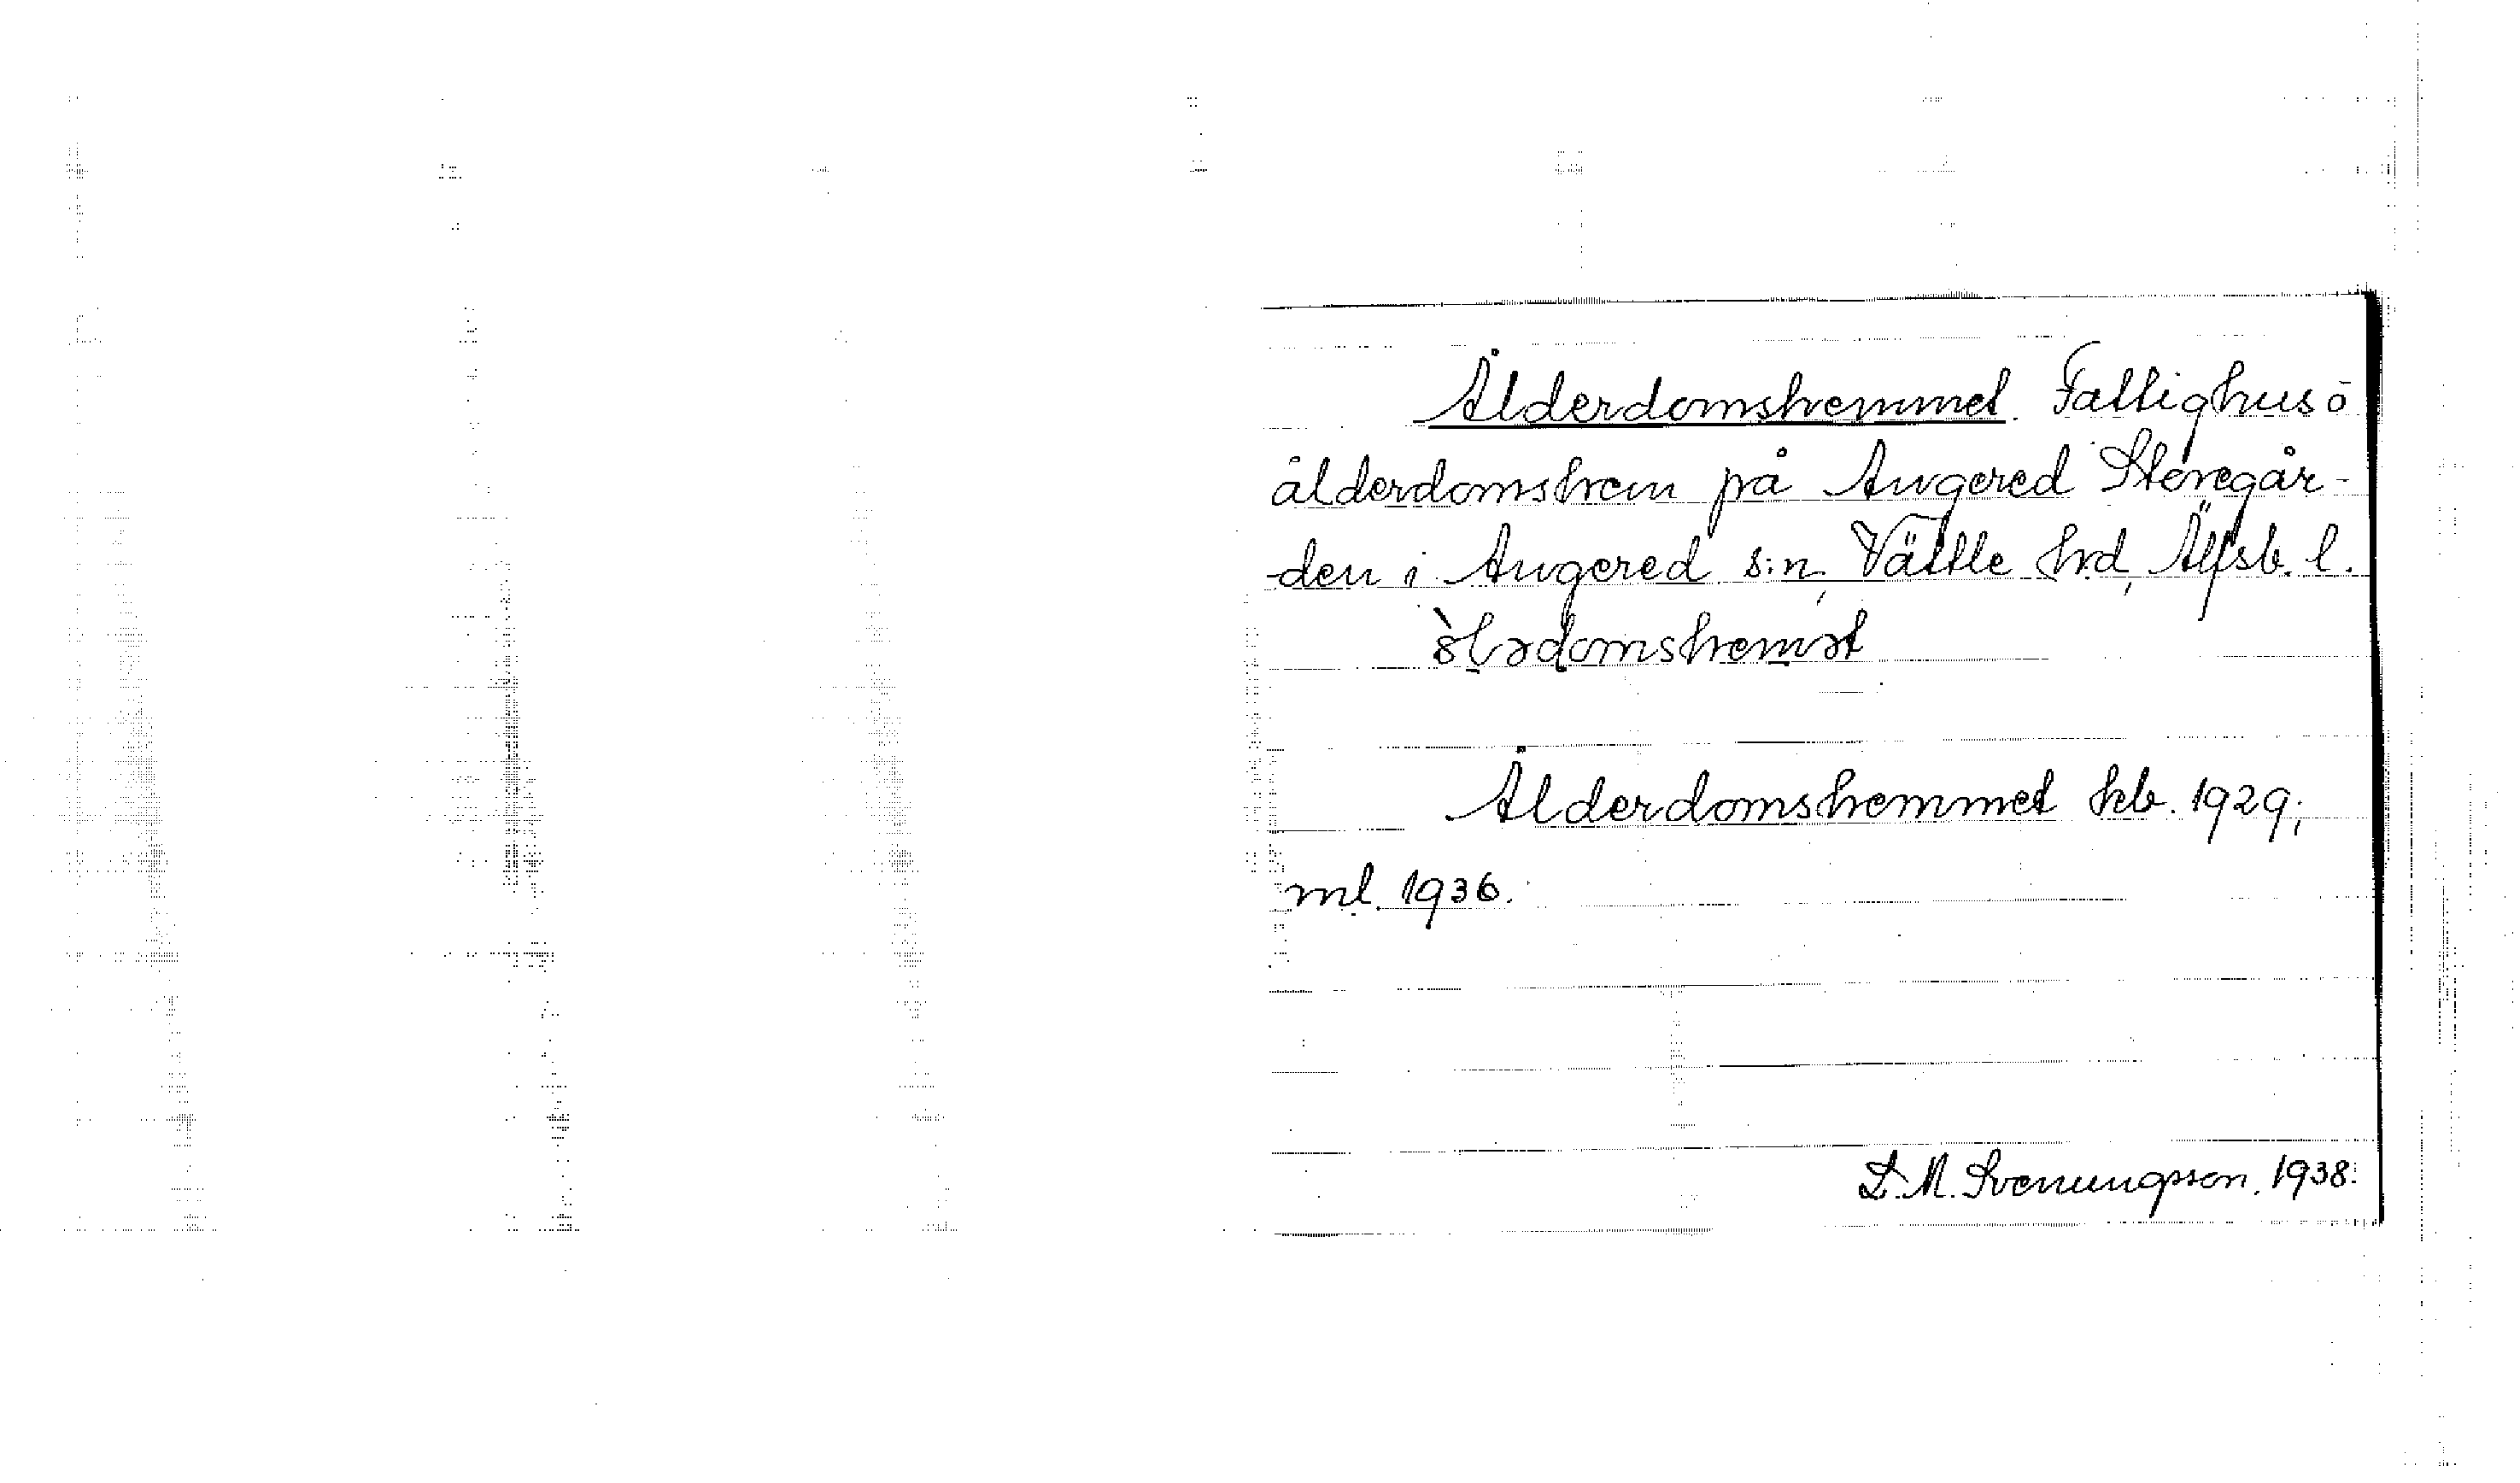 Ålderdomshemmet. Fattighus ō
ålderdomshem på Angered Storegår-
-den i Angered s:n, Vättle hd, Älfsb. l.
ålderdomshemmet kb. 1929;
ml. 1936.
L. M. Svenungsson. 1938.